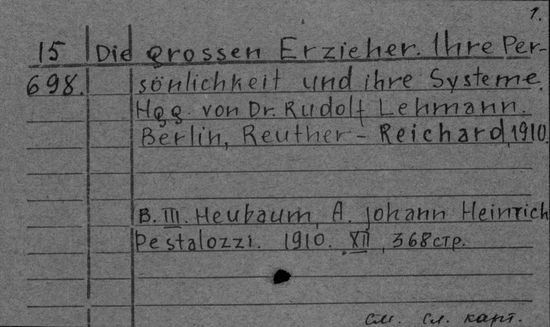 1.
15 Die grossen Erzieher. Ihre Per-
698. sönlichkeit und ihre Systeme.
Hgg. von Dr. Rudolf Lehmann.
Berlin, Reuther-Reichard, 1910.
B. III. Heubaum, A. Johann Heinrich
Pestalozzi. 1910. XII, 368 стр.
см. сл. карт.